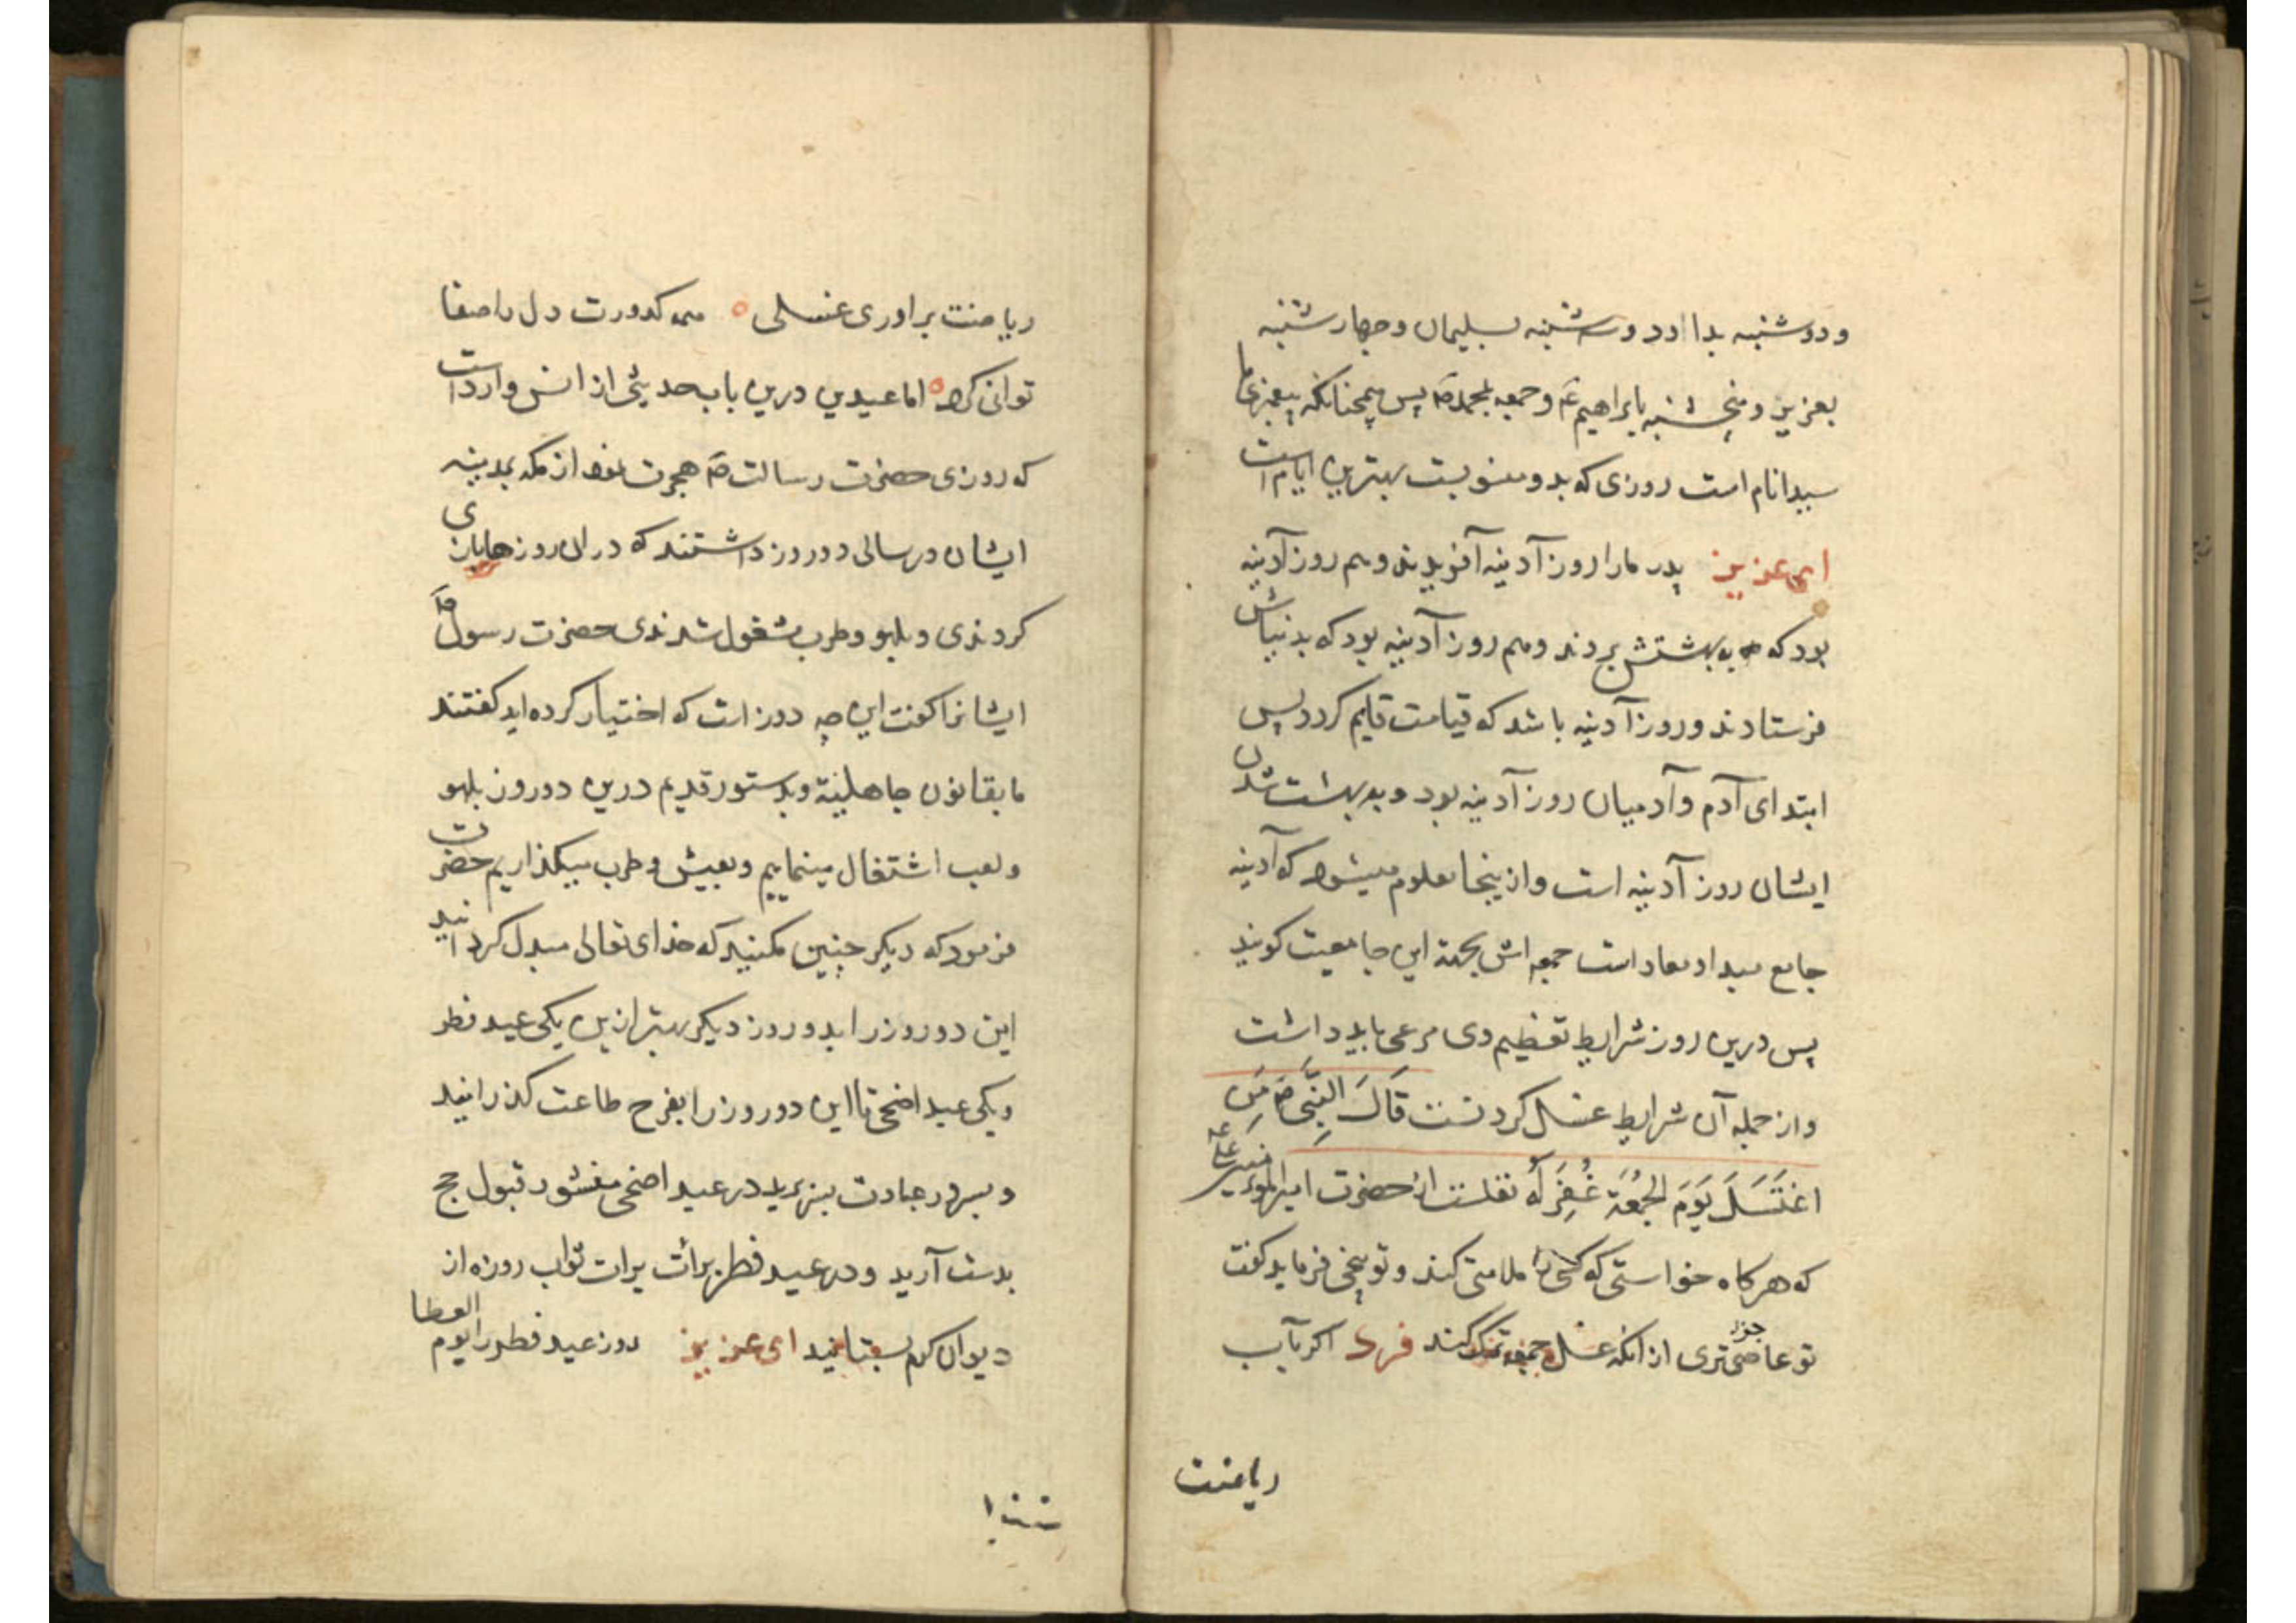 و دوشنبه بداود و سه شنبه بسلیمان و چهارشنبه
بعزیز و پنجشنبه بابراهیم عم و جمعه بمحمد ص پس همچنانکه پیغمبر ما
سید انام است روزی که بدو منسوبست بهترین ایام است
ای عزیز پدر ما را روز آدینه آفریدند و هم روز آدینه
بود که به بهشتش بردند و هم روز آدینه بود که بدنیاش
فرستادند و روز آدینه باشد که قیامت قایم کردد پس
ابتدای آدم و آدمیان روز آدینه بود و به بهشت شدن
ایشان روز آدینه است و ازینجا معلوم میشود که آدینه
جامع مبدا و معاد است جمعه اش بجهة این جامعیت کویند
پس درین روز شرایط تعظیم وی مرعی باید داشت
و از جمله آن شرایط غسل کردنست قَالَ النَّبِی ص مَن
اغتَسَلَ یَومَ الجُمُعَة غُفِرَ لَهُ نقلست از حضرت امیرالمؤمنین علی
که هرکاه خواستی که کسی را ملامتی کند و توبیخی فرماید کفت
تو عاصی تری از انکه غسل جمعه ترک کند فرد اکر بآب
ریاضت
ریاضت براوری غسلی همه کدورت دل را صفا
توانی کرد اما عیدین درین باب حدیثی از انس وارد است
که روزی حضرت رسالت ص هجرت نمود از مکه بمدینه
ایشان در سالی دو روز داشتند که در ان روزها بازی
کردندی و بلهو و طرب مشغول شدندی حضرت رسول ص
ایشانرا کفت این چه روز است که اختیار کرده اید کفتند
ما بقانون جاهلیة و بدستور قدیم درین دو روز بلهو
و لعب اشتغال مینماییم و بعیش و طرب میکذاریم حضرت
فرمود که دیکر چنین مکنید که خدای تعالی مبدل کردانید
این دو روز را بدو روز دیکر بهتر ازین یکی عید فطر
و یکی عید اضحی تا این دو روز را بفرح طاعت کذرانید
و بسرور عبادت بسر برید در عید اضحی منشور قبول حج
بدست آرید و در عید فطر برائت برات ثواب روزه از
دیوان کرم بستانید ای عزیز روز عید فطر را یوم العطا